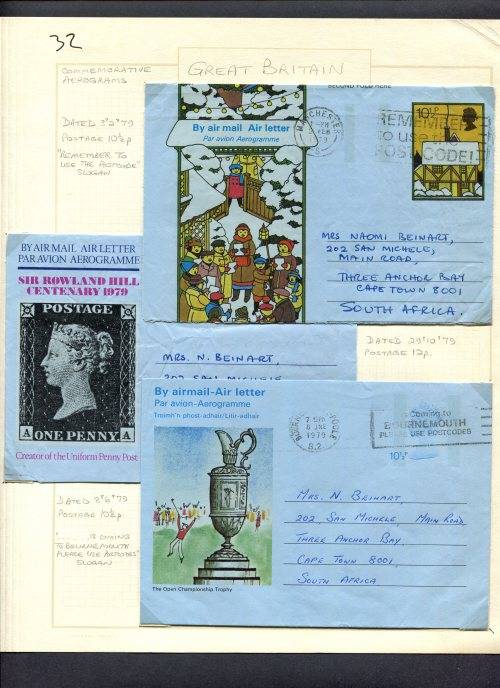 32
COMMEMORATIVE
AEROGRAMS
GREAT BRITAIN
DATED 3"2"79
POSTAGE 10½p
"REMEMBER TO
USE THE POSTCODE"
SLOGAN
SECOND FOLD HERE
By air mail Air letter
Par avion Aerogramme
MANCHESTER
FEB
REMEMBER
TO USE
POST CODE!
10½P
MRS NAOMI BEINART,
202 SAN MICHELE,
MAIN ROAD,
THREE ANCHOR BAY
CAPE TOWN 8001
SOUTH AFRICA.
BY AIR MAIL AIR LETTER
PAR AVION AEROGRAMME
SIR ROWLAND HILL
CENTENARY 1979
POSTAGE
A ONE PENNY A
Creator of the Uniform Penny Post
MRS. N. BEINART,
202 SAN MICHELE
DATED 29"10"79
POSTAGE 12p.
By airmail-Air letter
Par avion-Aerogramme
Troimh'n phost-adhair/Litir-adhair
8 JNE
1979
POOLE
Coming to
BOURNEMOUTH
PLEASE USE POSTCODES
10½P
MRS. N. BEINART,
202 SAN MICHELE, MAIN ROAD
THREE ANCHOR BAY
CAPE TOWN 8001,
SOUTH AFRICA
The Open Championship Trophy
DATED 8"6"79
POSTAGE 10½p
IS COMING
TO BOURNEMOUTH
PLEASE USE POSTCODES"
SLOGAN